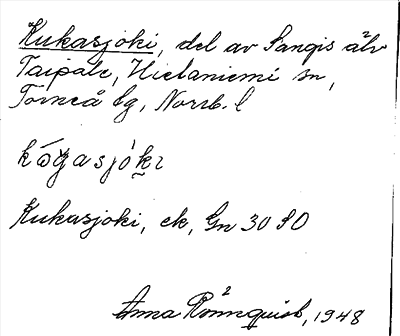 Kukasjoki, del av Sangis älv
Taipale, Hietaniemi sn,
Torneå lg, Norrb. l
Kukasjoki, ek, Gn 30 SO
Anna Rönnquist, 1948